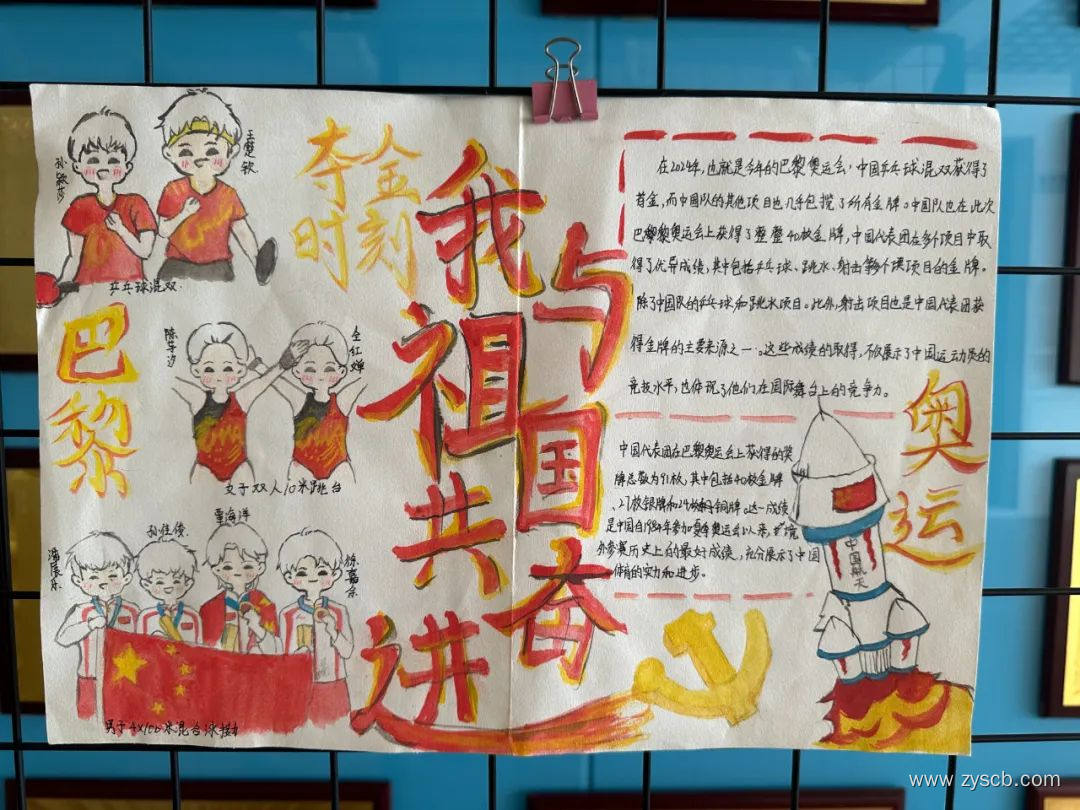 孙颖莎
王楚钦
乒乓球混双
夺金
时刻
巴黎
陈芋汐
全红婵
女子双人10米跳台
潘展乐
孙佳俊
覃海洋
徐嘉余
男子4×100米混合泳接力
我
祖
共
进
与
国
奋
在2024年,也就是今年的巴黎奥运会,中国乒乓球混双获得了
首金,而中国队的其他项目也几乎包揽了所有金牌。中国队也在此次
巴黎奥运会上获得了整整40枚金牌,中国代表团在多个项目中取
得了优异成绩,其中包括乒乓球、跳水、射击等个项目的金牌。
除了中国队的乒乓球和跳水项目。此外,射击项目也是中国代表团获
得金牌的主要来源之一。这些成绩的取得,不仅展示了中国运动员的
竞技水平,也体现了他们在国际舞台上的竞争力。
中国代表团在巴黎奥运会上获得的奖
牌总数为91枚,其中包括40枚金牌
、27枚银牌和24枚铜牌。这一成绩
是中国自1984年参加夏季奥运会以来,在境
外参赛历史上的最好成绩,充分展示了中国
体育的实力和进步。
奥运
中国航天
www.zyscb.com